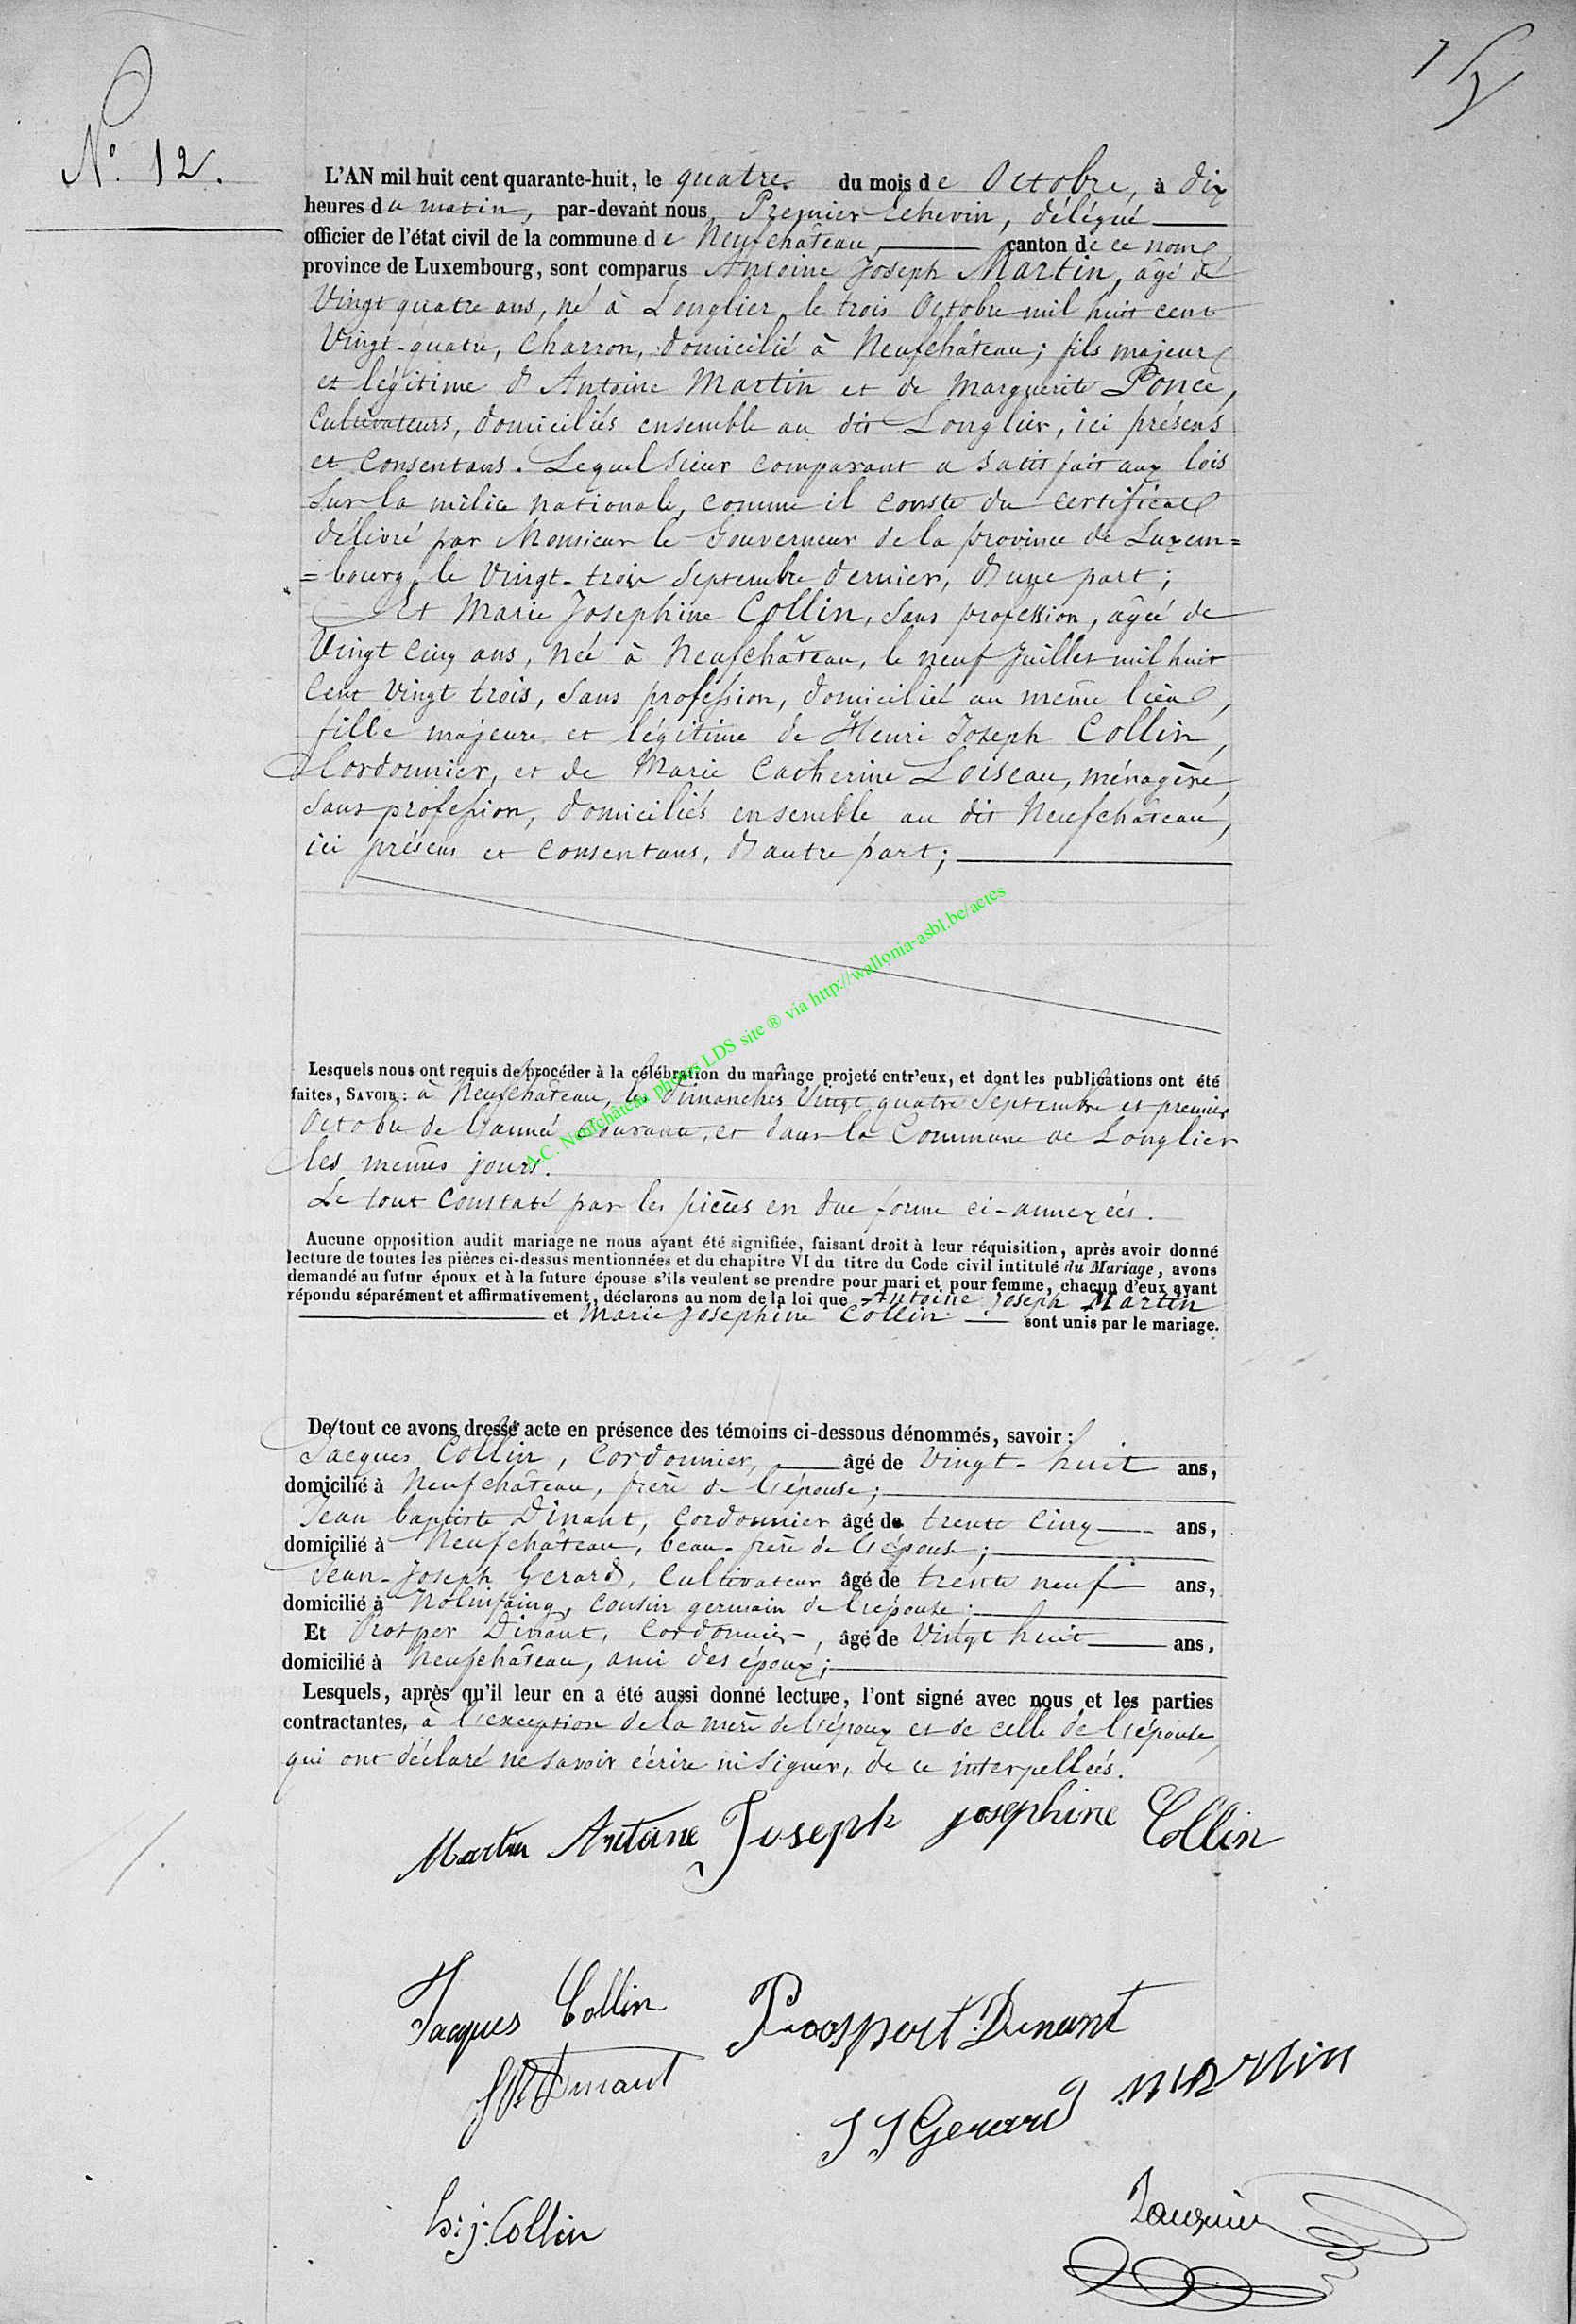 N.° 12.
L'AN mil huit cent quarante-huit, le quatre du mois de Octobre, à dix
heures du matin, par-devant nous, Premier Echevin, délégué
officier de l'état civil de la commune de Neufchâteau, canton de ce nom
province de Luxembourg, sont comparus Antoine Joseph Martin, âgé de
Vingt quatre ans, né à Longlier, le trois Octobre mil huit cent
Vingt-quatre, Charron, domicilié à Neufchâteau; fils majeur
et légitime d'Antoine Martin et de Marguerite Ponce,
Cultivateurs, domiciliés ensemble au dit Longlier, ici présens
et Consentans. Lequel sieur comparant a satisfait aux lois
sur la milice nationale, comme il conste du certificat
délivré par Monsieur le Gouverneur de la province de Luxem=
=bourg, le Vingt-trois Septembre dernier, d'une part;
Et Marie Josephine Collin, sans profession, âgée de
Vingt cinq ans, née à Neufchâteau, le neuf Juillet mil huit
Cent Vingt trois, sans profession, domiciliée au même lieu,
fille majeure et légitime de Henri Joseph Collin,
Cordonnier, et de Marie Catherine Loiseau, ménagère,
sans profession, domiciliés ensemble au dit Neufchâteau,
ici présens et consentans, d'autre part;
A.C. Neufchâteau photos LDS site ® via http://wallonia-asbl.be/actes
Lesquels nous ont requis de procéder à la célébration du mariage projeté entr'eux, et dont les publications ont été
faites, SAVOIR: à Neufchâteau, les Dimanches Vingt quatre Septembre et premier
Octobre de l'année courante, et dans la Commune de Longlier
les mêmes jours.
Le tout constaté par les pièces en due forme ci-annexées.
Aucune opposition audit mariage ne nous ayant été signifiée, faisant droit à leur réquisition, après avoir donné
lecture de toutes les pièces ci-dessus mentionnées et du chapitre VI du titre du Code civil intitulé du Mariage, avons
demandé au futur époux et à la future épouse s'ils veulent se prendre pour mari et pour femme, chacun d'eux ayant
répondu séparément et affirmativement, déclarons au nom de la loi que Antoine Joseph Martin
et Marie Josephine Collin sont unis par le mariage.
De tout ce avons dressé acte en présence des témoins ci-dessous dénommés, savoir:
Jacques Collin, Cordonnier, âgé de Vingt-huit ans,
domicilié à Neufchâteau, frère de l'épouse;
Jean baptiste Dinant, Cordonnier âgé de trente cinq ans,
domicilié à Neufchâteau, beau-frère de l'épouse;
Jean-Joseph Gerard, Cultivateur âgé de trente neuf ans,
domicilié à Nolinfaing, cousin germain de l'épouse;
Et Prosper Dinant, Cordonnier, âgé de Vingt huit ans,
domicilié à Neufchâteau, ami des époux;
Lesquels, après qu'il leur en a été aussi donné lecture, l'ont signé avec nous et les parties
contractantes, à l'exception de la mère de l'époux et de celle de l'épouse,
qui ont déclaré ne savoir écrire ni signer, de ce interpellées.
Martin Antoine Joseph josephine Collin
Jacques Collin Prosper Dinant
JB Dinant martin
J J Gerard
h: j: Collin